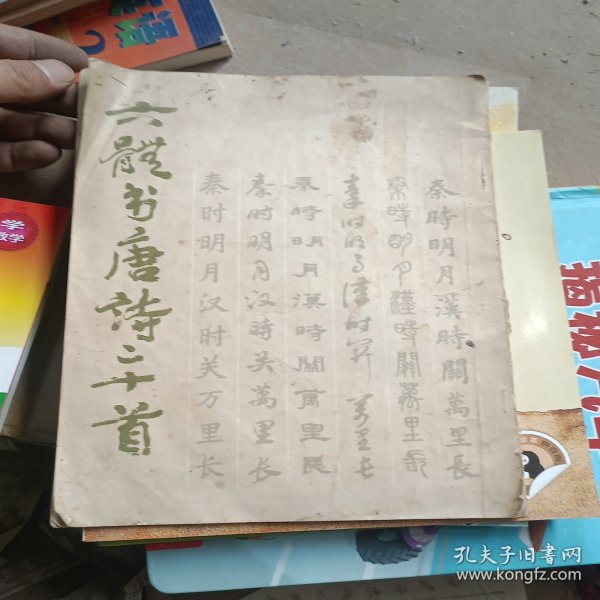 六體书唐詩三十首
秦時明月漢時關萬里長
秦時明月漢時關萬里長
秦时明月漢时关萬里長
秦時明月漢時關萬里長
秦时明月汉時关萬里长
秦时明月汉时关万里长
学
数学
孔夫子旧书网
www.kongfz.com